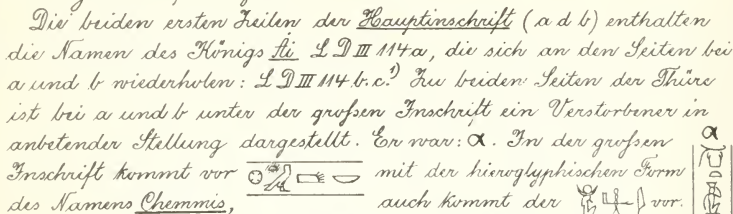 Die beiden ersten Zeilen der Hauptinschrift (a d b) enthalten
die Namen des Königs Ai LD III 114a, die sich an den Seiten bei
a und b wiederholen: LD III 114 b.c.¹) Zu beiden Seiten der Thüre
ist bei a und b unter der großen Inschrift ein Verstorbener in
anbetender Stellung dargestellt. Er war: α. In der großen
Inschrift kommt vor mit der hieroglyphischen Form
des Namens Chemmis, auch kommt der vor.
α